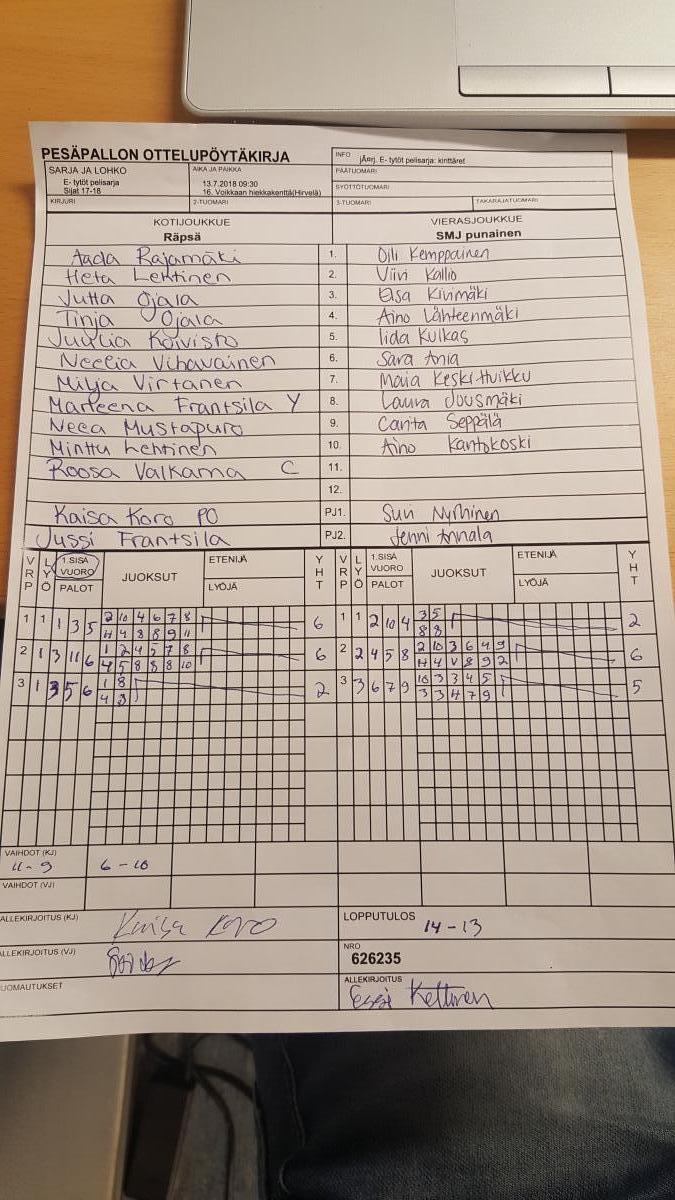 PESÄPALLON OTTELUPÖYTÄKIRJA
INFO jÄorj. E- tytöt pelisarja: kinttäret
SARJA JA LOHKO
E- tytöt pelisarja
Sijat 17-18
AIKA JA PAIKKA
13.7.2018 09:30
16. Voikkaan hiekkakenttä(Hirvelä)
PÄÄTUOMARI
SYÖTTÖTUOMARI
KIRJURI 2-TUOMARI 3-TUOMARI TAKARAJATUOMARI
KOTIJOUKKUE VIERASJOUKKUE
Räpsä SMJ punainen
Aada Rajamäki 1. Oili Kemppainen
Heta Lehtinen 2. Viivi Kallio
Jutta Ojala 3. Elsa Kivimäki
Tinja Ojala 4. Aino Lähteenmäki
Juulia Koivisto 5. Iida Kulkas
Neelia Vihavainen 6. Sara Ania
Milja Virtanen 7. Maia Keski-Huikku
Marleena Frantsila Y 8. Laura Jousmäki
Neea Mustapuro 9. Carita Seppälä
Minttu Lehtinen 10. Aino Kantokoski
Roosa Valkama C 11.
12.
Kaisa Koro PO PJ1. Suvi Nyrhinen
Jussi Frantsila PJ2. Jenni Annala
VRP LYÖ 1.SISÄ VUORO PALOT JUOKSUT ETENIJÄ LYÖJÄ YHT VRP LYÖ 1.SISÄ VUORO PALOT JUOKSUT ETENIJÄ LYÖJÄ YHT
1 1 1 3 5 2 10 4 6 7 8 6 1 1 2 10 4 3 5 2
H 4 8 8 9 11 8 8
2 1 3 11 6 1 2 4 5 7 8 6 2 2 4 5 8 2 10 3 6 4 9 6
4 5 8 8 8 10 H 4 V 8 9 2
3 1 3 5 6 1 8 2 3 3 6 7 9 10 3 3 4 5 5
4 8 3 3 H 7 9
VAIHDOT (KJ)
11-9 6-10
VAIHDOT (VJ)
ALLEKIRJOITUS (KJ) Kaisa Koro
LOPPUTULOS 14-13
ALLEKIRJOITUS (VJ)
NRO
626235
UOMAUTUKSET
ALLEKIRJOITUS
Essi Kettunen